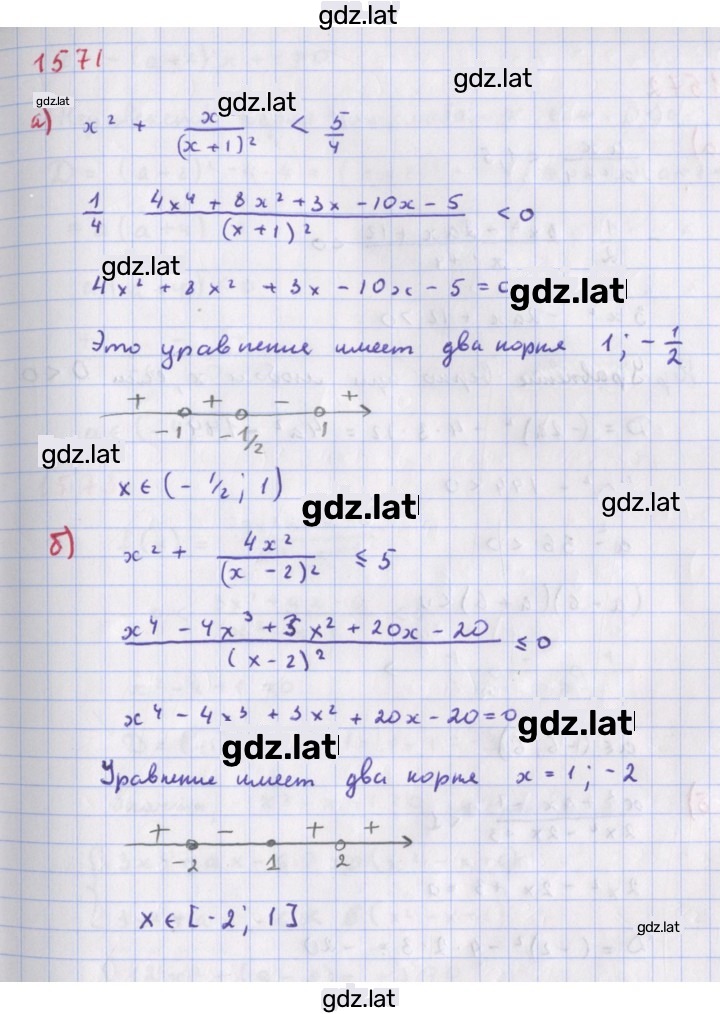 gdz.lat
1571
gdz.lat
gdz.lat
gdz.lat
а) x² + x/(x+1)² < 5/4
1/4 (4x⁴ + 8x² + 3x - 10x - 5)/(x+1)² < 0
gdz.lat
4x² + 8x² + 3x - 10x - 5 = 0
gdz.lat
Это уравнение имеет два корня 1; -1/2
+ + - +
-1 -1/2 1
gdz.lat
x ∈ (-1/2; 1)
gdz.lat
gdz.lat
б) x² + 4x²/(x - 2)² ≤ 5
(x⁴ - 4x³ + 3x² + 20x - 20)/(x-2)² ≤ 0
x⁴ - 4x³ + 3x² + 20x - 20 = 0
gdz.lat
gdz.lat
Уравнение имеет два корня x = 1; -2
+ - + +
-2 1 2
x ∈ [-2; 1]
gdz.lat
gdz.lat